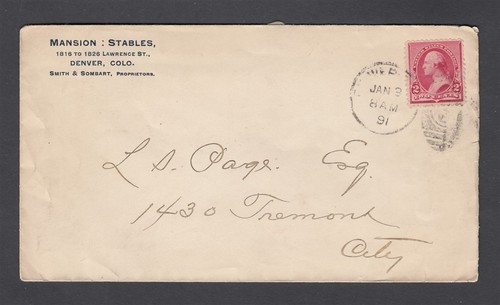 MANSION : STABLES,
1816 TO 1826 LAWRENCE ST.,
DENVER, COLO.
SMITH & SOMBART, PROPRIETORS.
JAN 9
8 AM
91
2 2
TWO CENTS
L. S. Page. Esq.
1430 Tremont
City